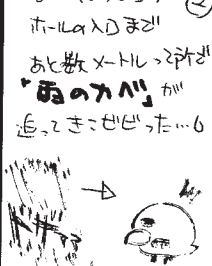 ホールの入口まで
あと数メートルって所で
「雨のカベ」が
追ってきてビビった…6
ドドドド